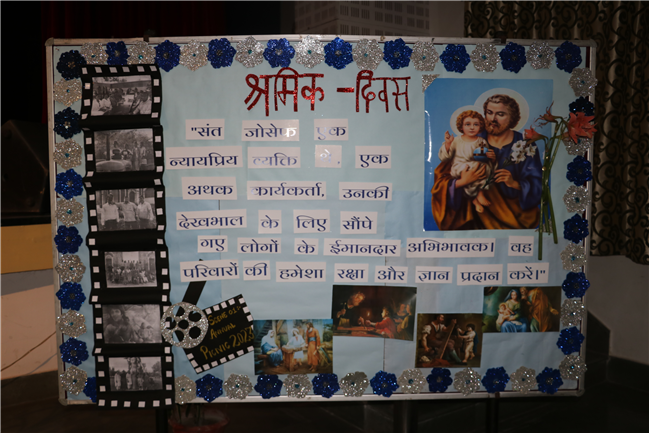 श्रमिक - दिवस
"संत जोसेफ एक
न्यायप्रिय व्यक्ति थे, एक
अथक कार्यकर्ता, उनकी
देखभाल के लिए सौंपे
गए लोगों के ईमानदार अभिभावक। वह
परिवारों की हमेशा रक्षा और ज्ञान प्रदान करें।"
SCENE 01:-
ANNUAL
PICNIC 2023